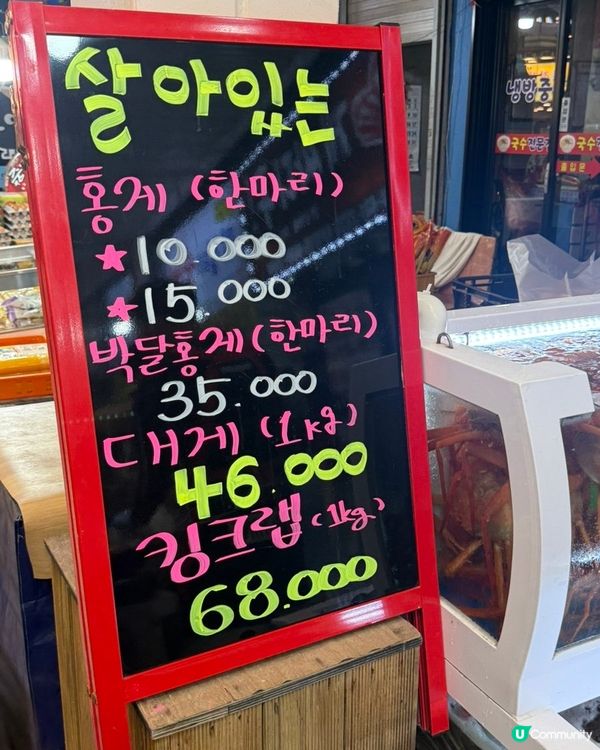 살아있는
홍게 (한마리)
★10.000
★15.000
박달홍게(한마리)
35.000
대게 (1kg)
46.000
킹크랩 (1kg)
68.000
냉방중
국수전문
국수
출입문
U Community